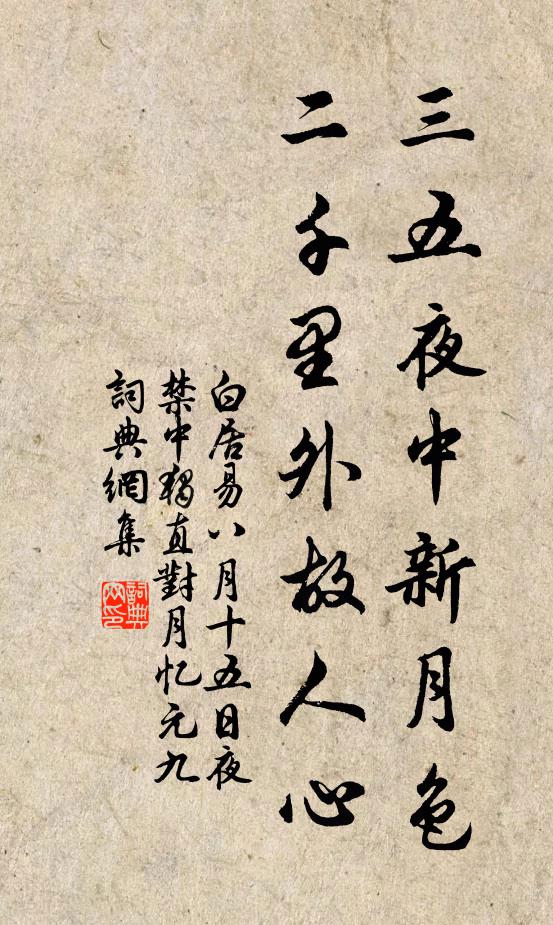 三五夜中新月色
二千里外故人心
白居易八月十五日夜
禁中獨直對月忆元九
詞典網集
詞典網印